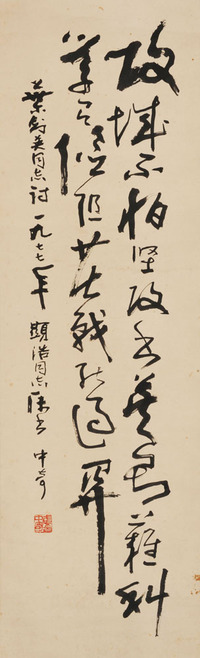 攻城不怕坚攻书莫畏难科
学有险阻苦战能过关
叶剑英同志诗一九七七年 顯浩同志属书 中奇